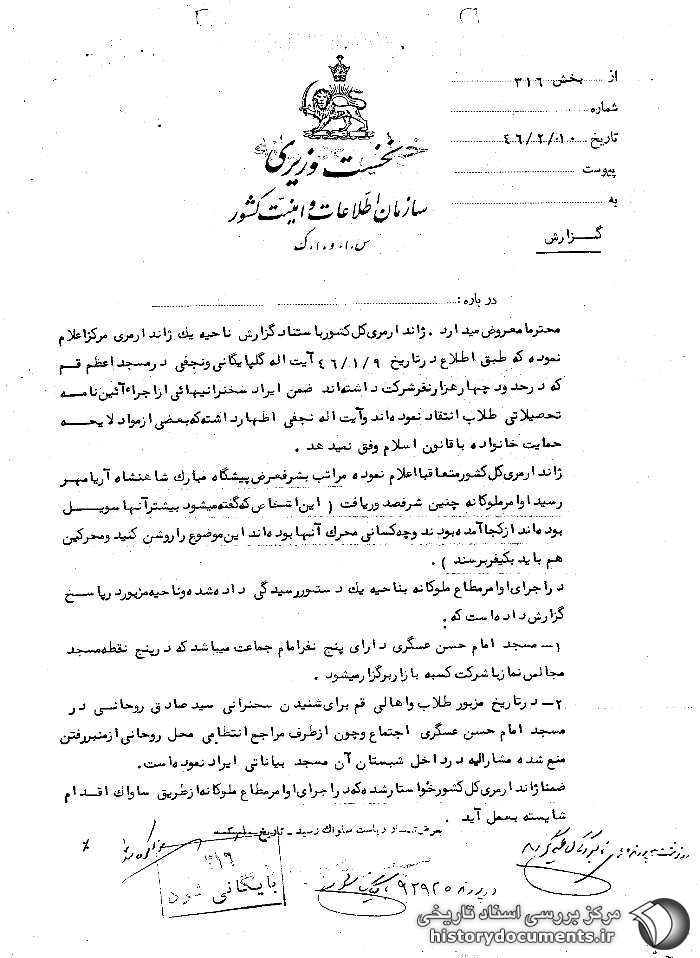 از بخش ۳۱۶
شماره
تاریخ ۴۶/۲/۱۰
پیوست
به
گزارش
نخست وزیری
سازمان اطلاعات و امنیت کشور
س.ا.و.ا.ک
درباره :
محترما معروض میدارد . ژاندارمری کل کشور باستناد گزارش ناحیه یک ژاندارمری مرکز اعلام
نموده که طبق اطلاع در تاریخ ۴۶/۱/۹ آیت اله گلپایگانی ونجفی در مسجد اعظم قم
که در حدود چهار هزار نفر شرکت داشته اند ضمن ایراد سخنرانیهائی از اجراء آئین نامه
تحصیلاتی طلاب انتقاد نموده اند وآیت اله نجفی اظهار داشته که بعضی از مواد لایحه
حمایت خانواده با قانون اسلام وفق نمیدهد .
ژاندارمری کل کشور متعاقبا اعلام نموده مراتب بشرفعرض پیشگاه مبارک شاهنشاه آریامهر
رسید اوامر ملوکانه چنین شرفصدور یافت ( این اشخاص که گفته میشود بیشتر آنها سویل
بوده اند از کجا آمده بودند وچه کسانی محرک آنها بوده اند این موضوع را روشن کنید ومحرکین
هم باید بکیفر برسند ) .
در اجرای اوامر مطاع ملوکانه بناحیه یک دستور رسیدگی داده شده وناحیه مزبور در پاسخ
گزارش داده است که .
۱- مسجد امام حسن عسگری دارای پنج نفر امام جماعت میباشد که در پنج نقطه مسجد
مجالس نماز با شرکت کسبه بازار برگزار میشود .
۲- در تاریخ مزبور طلاب واهالی قم برای شنیدن سخنرانی سید صادق روحانی در
مسجد امام حسن عسگری اجتماع وچون از طرف مراجع انتظامی محل روحانی از منبر رفتن
منع شده مشارالیه در داخل شبستان آن مسجد بیاناتی ایراد نموده است.
ضمنا ژاندارمری کل کشور خواستار شده که در اجرای اوامر مطاع ملوکانه از طریق ساواک اقدام
شایسته بعمل آید .
بعرض تیمسار ریاست ساواک رسید - تاریخ
۳۱۶
بایگانی شود
در پرونده ۹۲۹۲۵
مرکز بررسی اسناد تاریخی
historydocuments.ir